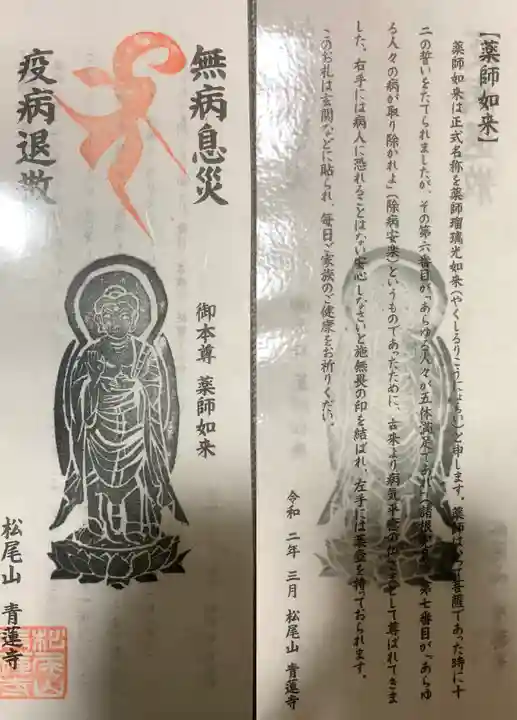 無病息災
疫病退散
御本尊 薬師如来
松尾山 青蓮寺
【薬師如来】
薬師如来は正式名称を薬師瑠璃光如来(やくしるりこうにょらい)と申します。薬師はかつて菩薩であった時に十
二の誓いをたてられましたが、その第六番目が「あらゆる人々が五体満足であれ」(諸根具足)、第七番目が「あらゆ
る人々の病が取り除かれよ」(除病安楽)というものであったために、古来より病気平癒の仏さまとして尊ばれてきま
した。右手には病人に恐れることはない安心しなさいと施無畏の印を結ばれ、左手には薬壺を持っておられます。
このお札は玄関などに貼られ、毎日ご家族のご健康をお祈りください。
令和 二年 三月 松尾山 青蓮寺